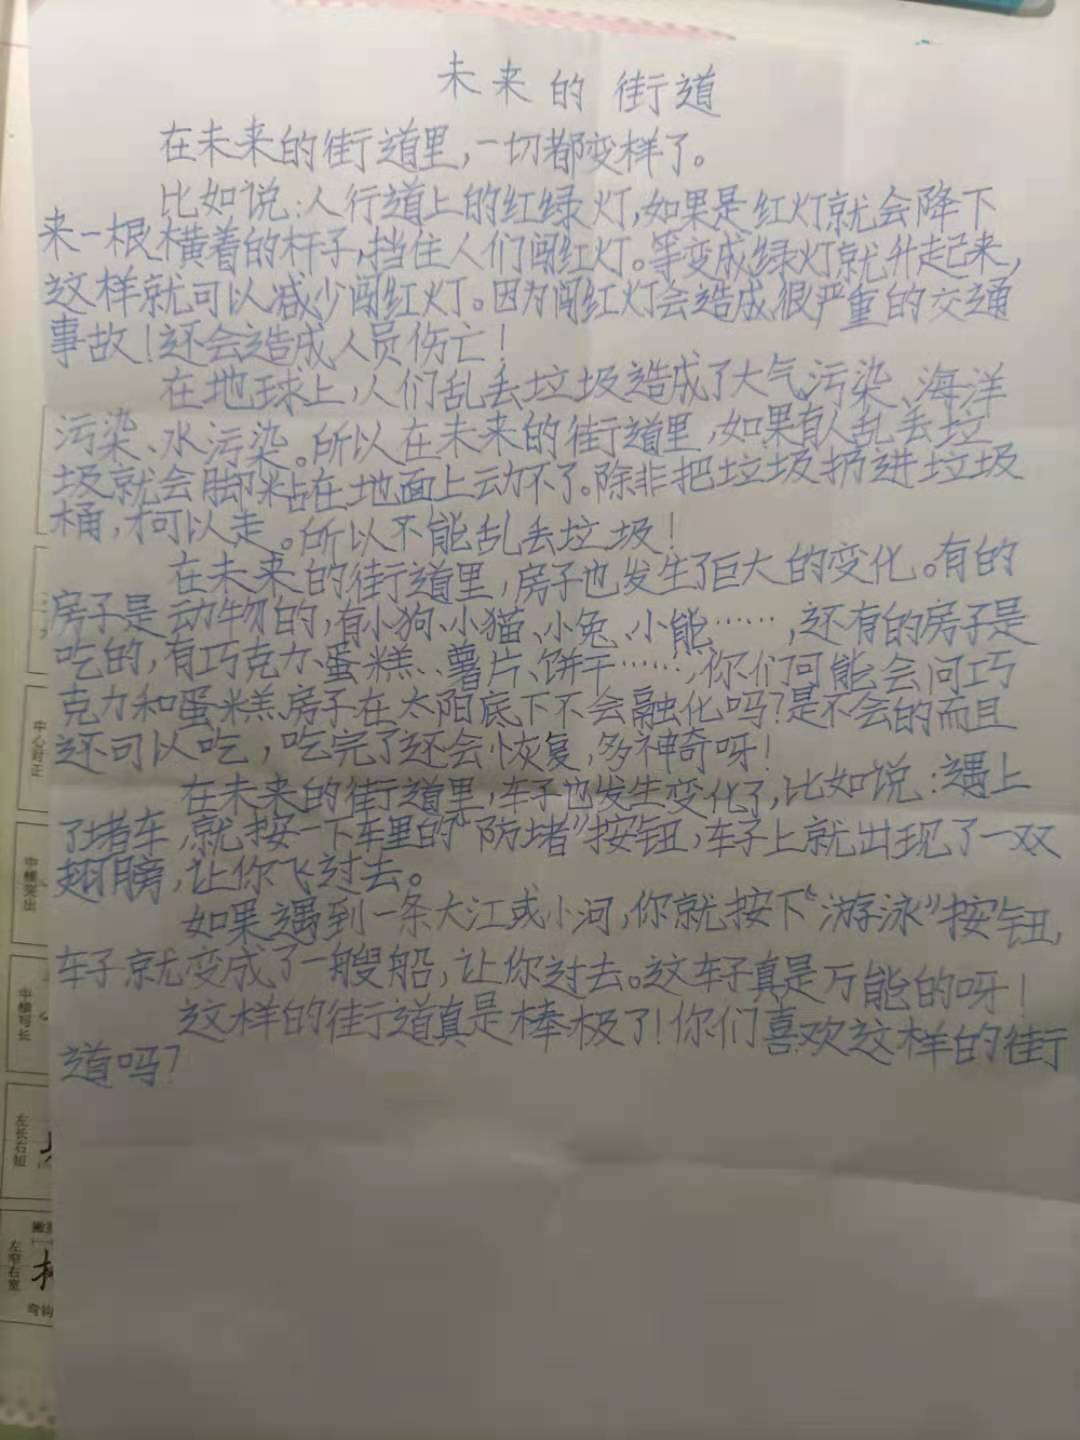 未来的街道
在未来的街道里,一切都变样了。
比如说:人行道上的红绿灯,如果是红灯就会降下
来一根横着的杆子,挡住人们闯红灯。等变成绿灯就升起来,
这样就可以减少闯红灯。因为闯红灯会造成很严重的交通
事故!还会造成人员伤亡!
在地球上,人们乱丢垃圾造成了大气污染、海洋
污染、水污染。所以在未来的街道里,如果有人乱丢垃
圾就会脚粘在地面上动不了。除非把垃圾扔进垃圾
桶,才可以走。所以不能乱丢垃圾!
在未来的街道里,房子也发生了巨大的变化。有的
房子是动物的,有小狗、小猫、小兔、小能……,还有的房子是
吃的,有巧克力、蛋糕、薯片、饼干……,你们可能会问巧
克力和蛋糕房子在太阳底下不会融化吗?是不会的而且
还可以吃,吃完了还会恢复,多神奇呀!
在未来的街道里,车子也发生变化了,比如说:遇上
了堵车,就按一下车里的“防堵”按钮,车子上就出现了一双
翅膀,让你飞过去。
如果遇到一条大江或小河,你就按下“游泳”按钮,
车子就变成了一艘船,让你过去。这车子真是万能的呀!
这样的街道真是棒极了!你们喜欢这样的街
道吗?
中心对正
中横突出
中横写长
左长右短
左窄右宽
弯钩